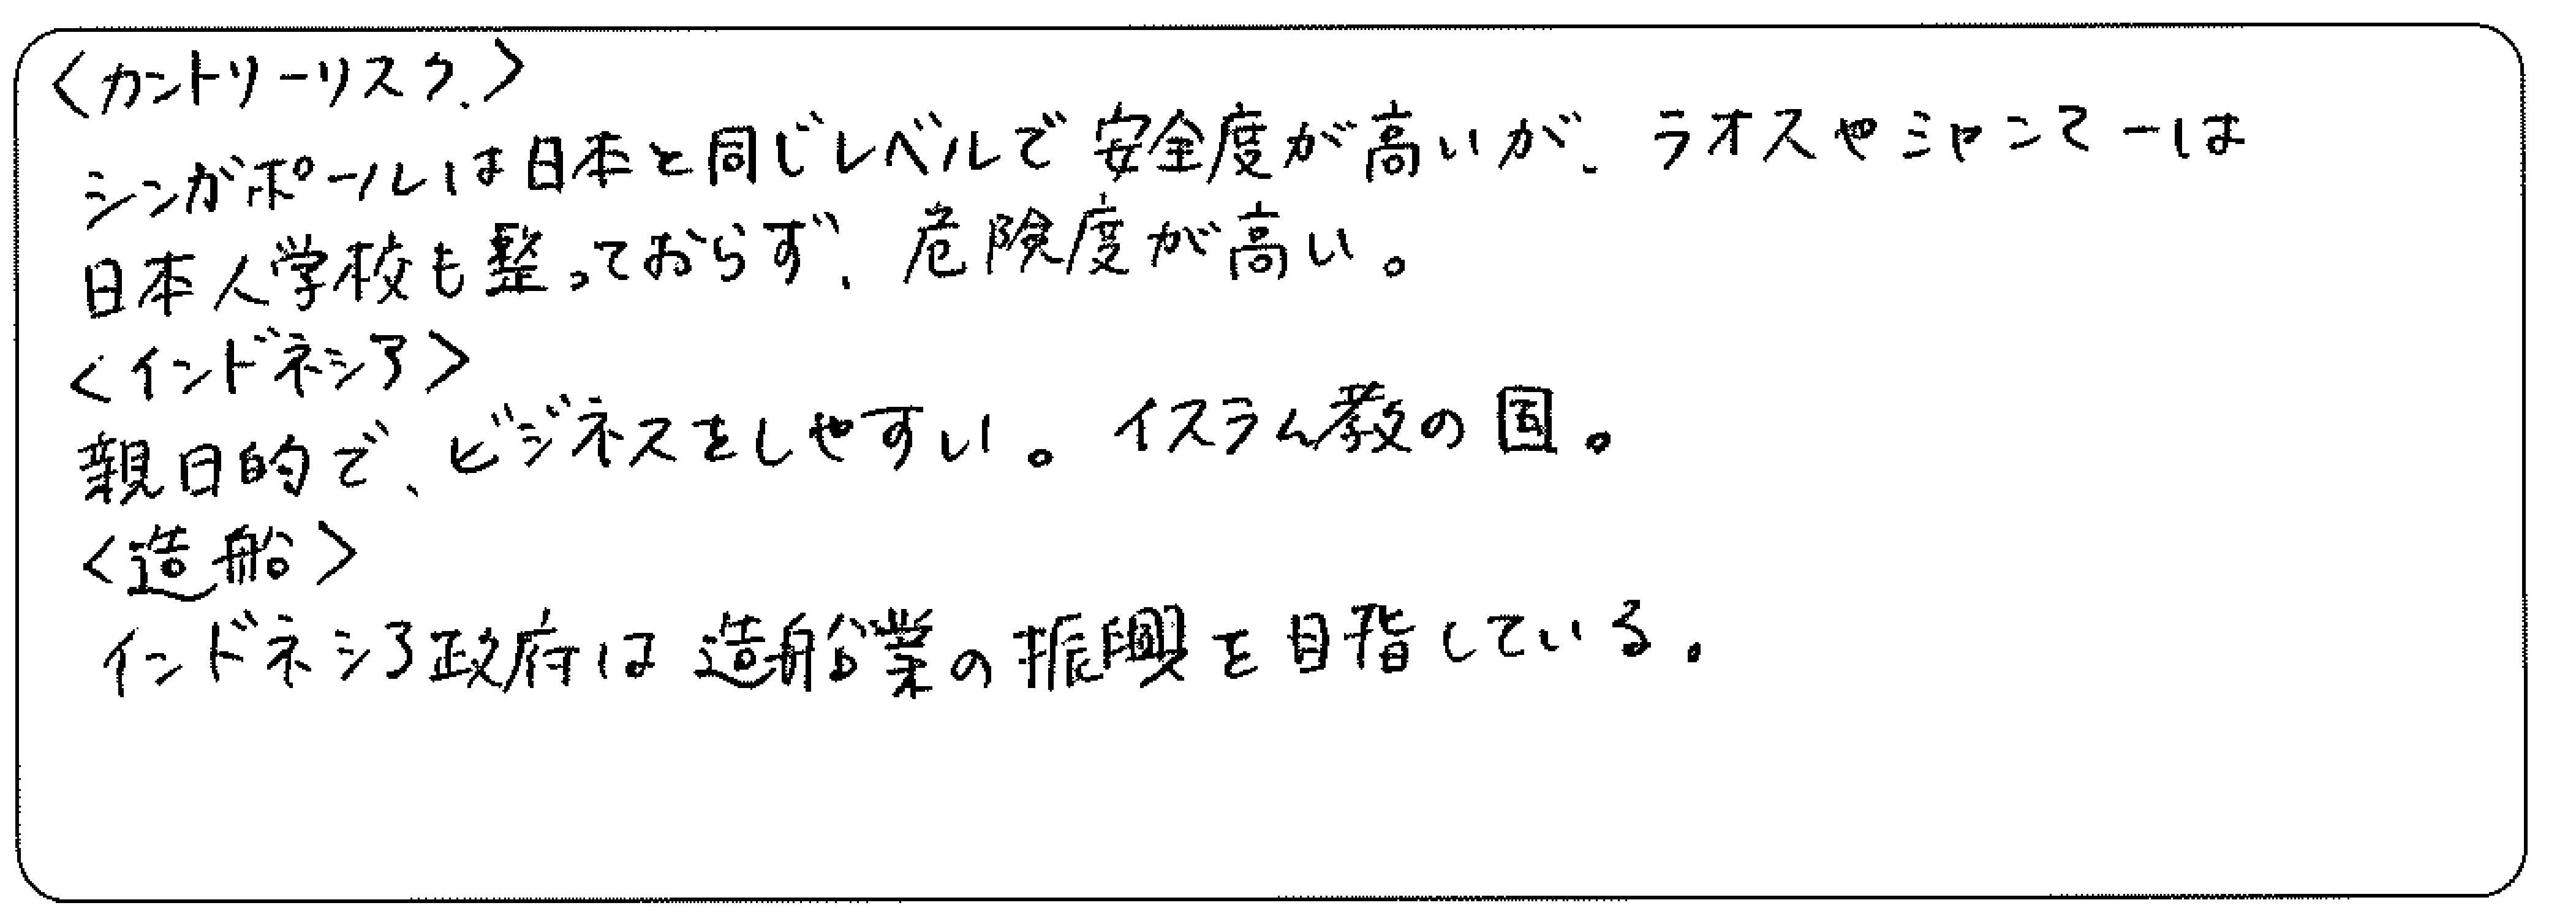 <カントリーリスク.>
シンガポールは日本と同じレベルで安全度が高いが、ラオスやミャンマーは
日本人学校も整っておらず、危険度が高い。
<インドネシア>
親日的で、ビジネスをしやすい。イスラム教の国。
<造船>
インドネシア政府は造船業の振興を目指している。